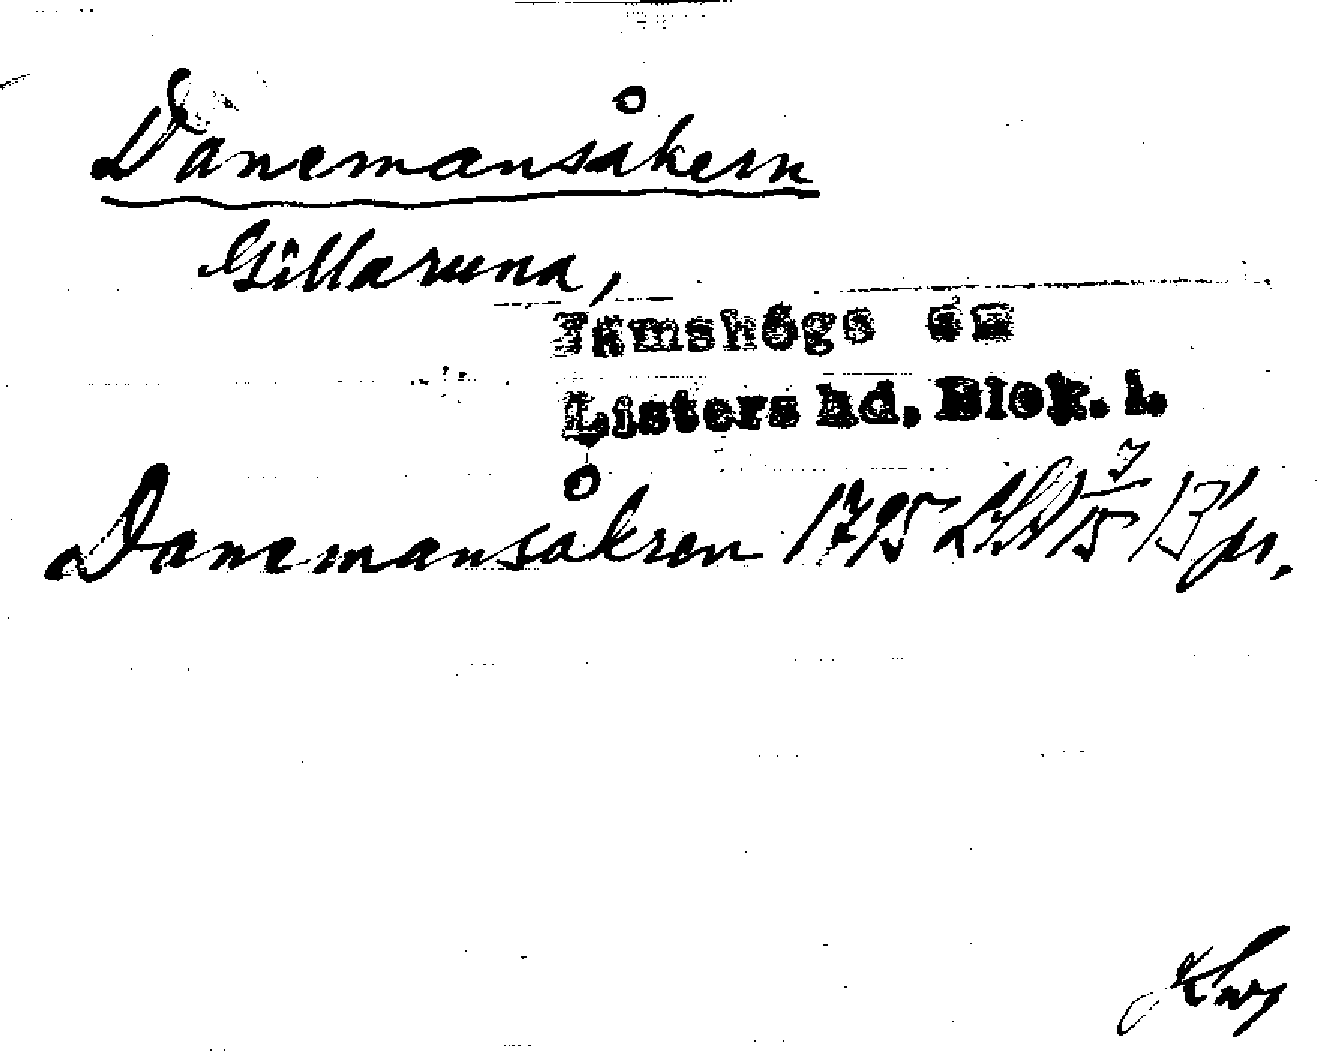 Danemansåkern
Gillaruna,
Jämshögs sn
Listers hd. Blek. l.
Danemansåkren 1795 LSA 7/15 13 pr.